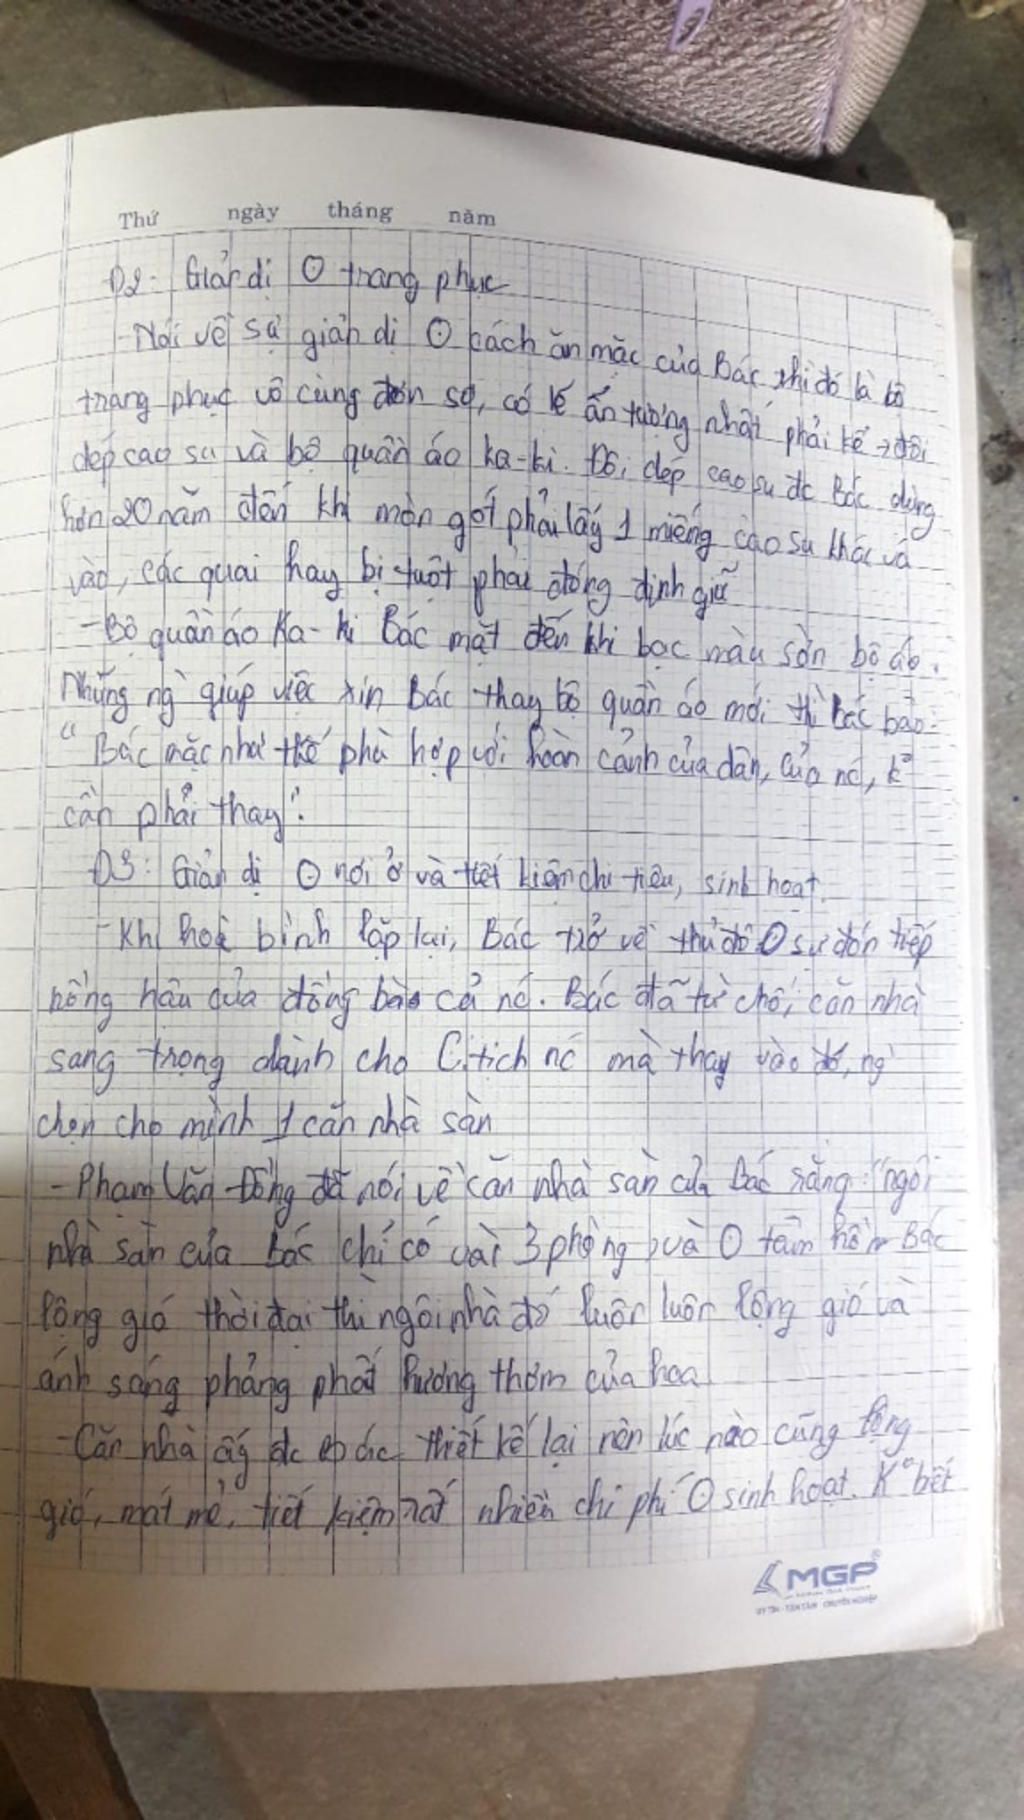 Thứ ngày tháng năm
Đ2: Giản dị ⊙ trang phục
- Nói về sự giản dị ⊙ cách ăn mặc của Bác, thì đó là bộ
trang phục vô cùng đơn sơ, có lẽ ấn tượng nhất phải kể → đôi
dép cao su và bộ quần áo ka-ki. Đôi dép cao su đc Bác dùng
hơn 20 năm đến khi mòn gót phải lấy 1 miếng cao su khác vá
vào, các quai hay bị tuột phải đóng đinh giữ
- Bộ quần áo Ka-ki Bác mặt đến khi bạc màu sờn bộ áo.
Những ng` giúp việc xin Bác thay bộ quần áo mới thì Bác bảo:
"Bác mặc như thế phù hợp với hoàn cảnh của dân, của nc, k°
cần phải thay".
Đ3: Giản dị ⊙ nơi ở và tiết kiệm chi tiêu, sinh hoạt
- Khi hoà bình lặp lại, Bác trở về thủ đô ⊙ sự đón tiếp
nồng hậu của đồng bào cả nc. Bác đã từ chối căn nhà
sang trọng dành cho C.tịch nc mà thay vào đó, ng`
chọn cho mình 1 căn nhà sàn
- Phạm Văn Đồng đã nói về căn nhà sàn của Bác rằng: "ngôi
nhà sàn của Bác chỉ có vài 3 phòng, và ⊙ tâm hồn Bác
lộng gió thời đại thì ngôi nhà đó luôn luôn lộng gió và
ánh sáng phảng phất hương thơm của hoa
- Căn nhà ấy đc thiết kế lại nên lúc nào cũng lộng
gió, mát mẻ, tiết kiệm rất nhiền chi phí ⊙ sinh hoạt. K° bết
MGP
UY TÍN - TẬN TÂM - CHUYÊN NGHIỆP